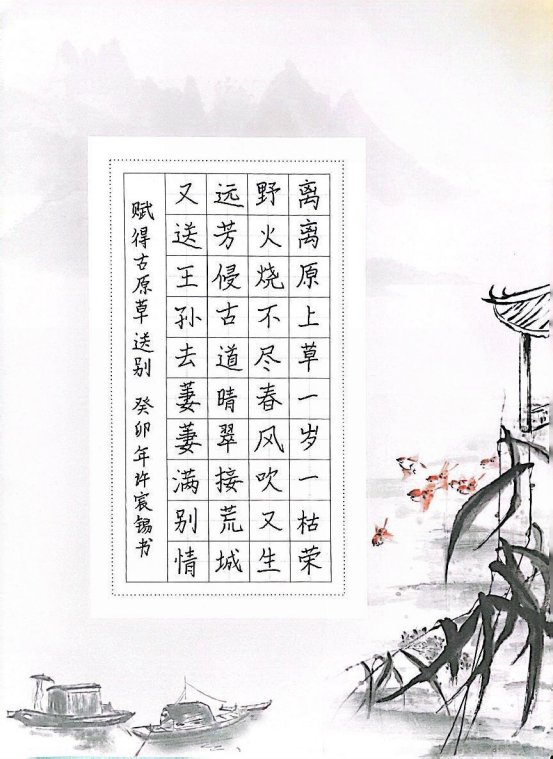 离离原上草一岁一枯荣
野火烧不尽春风吹又生
远芳侵古道晴翠接荒城
又送王孙去萋萋满别情
赋得古原草送别 癸卯年许宸锡书